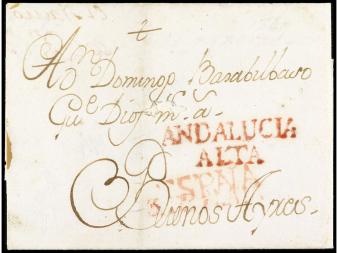 A Dn Domingo Basabilbaso
Gue Dios ms as
ANDALUCIA
ALTA
ESPAÑA
Buenos Ayres.